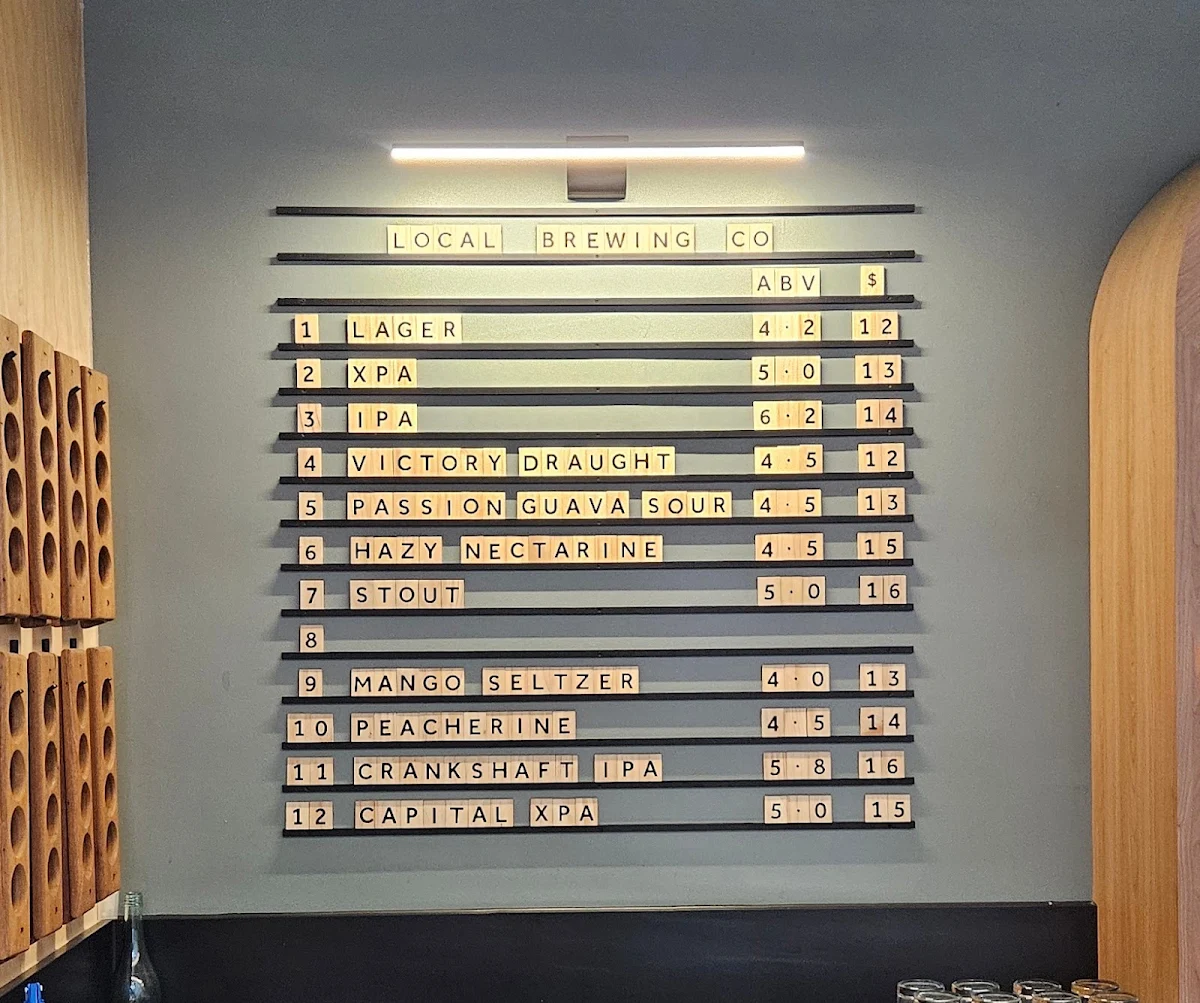 LOCAL BREWING CO
ABV $
1 LAGER 4·2 12
2 XPA 5·0 13
3 IPA 6·2 14
4 VICTORY DRAUGHT 4·5 12
5 PASSION GUAVA SOUR 4·5 13
6 HAZY NECTARINE 4·5 15
7 STOUT 5·0 16
8
9 MANGO SELTZER 4·0 13
10 PEACHERINE 4·5 14
11 CRANKSHAFT IPA 5·8 16
12 CAPITAL XPA 5·0 15